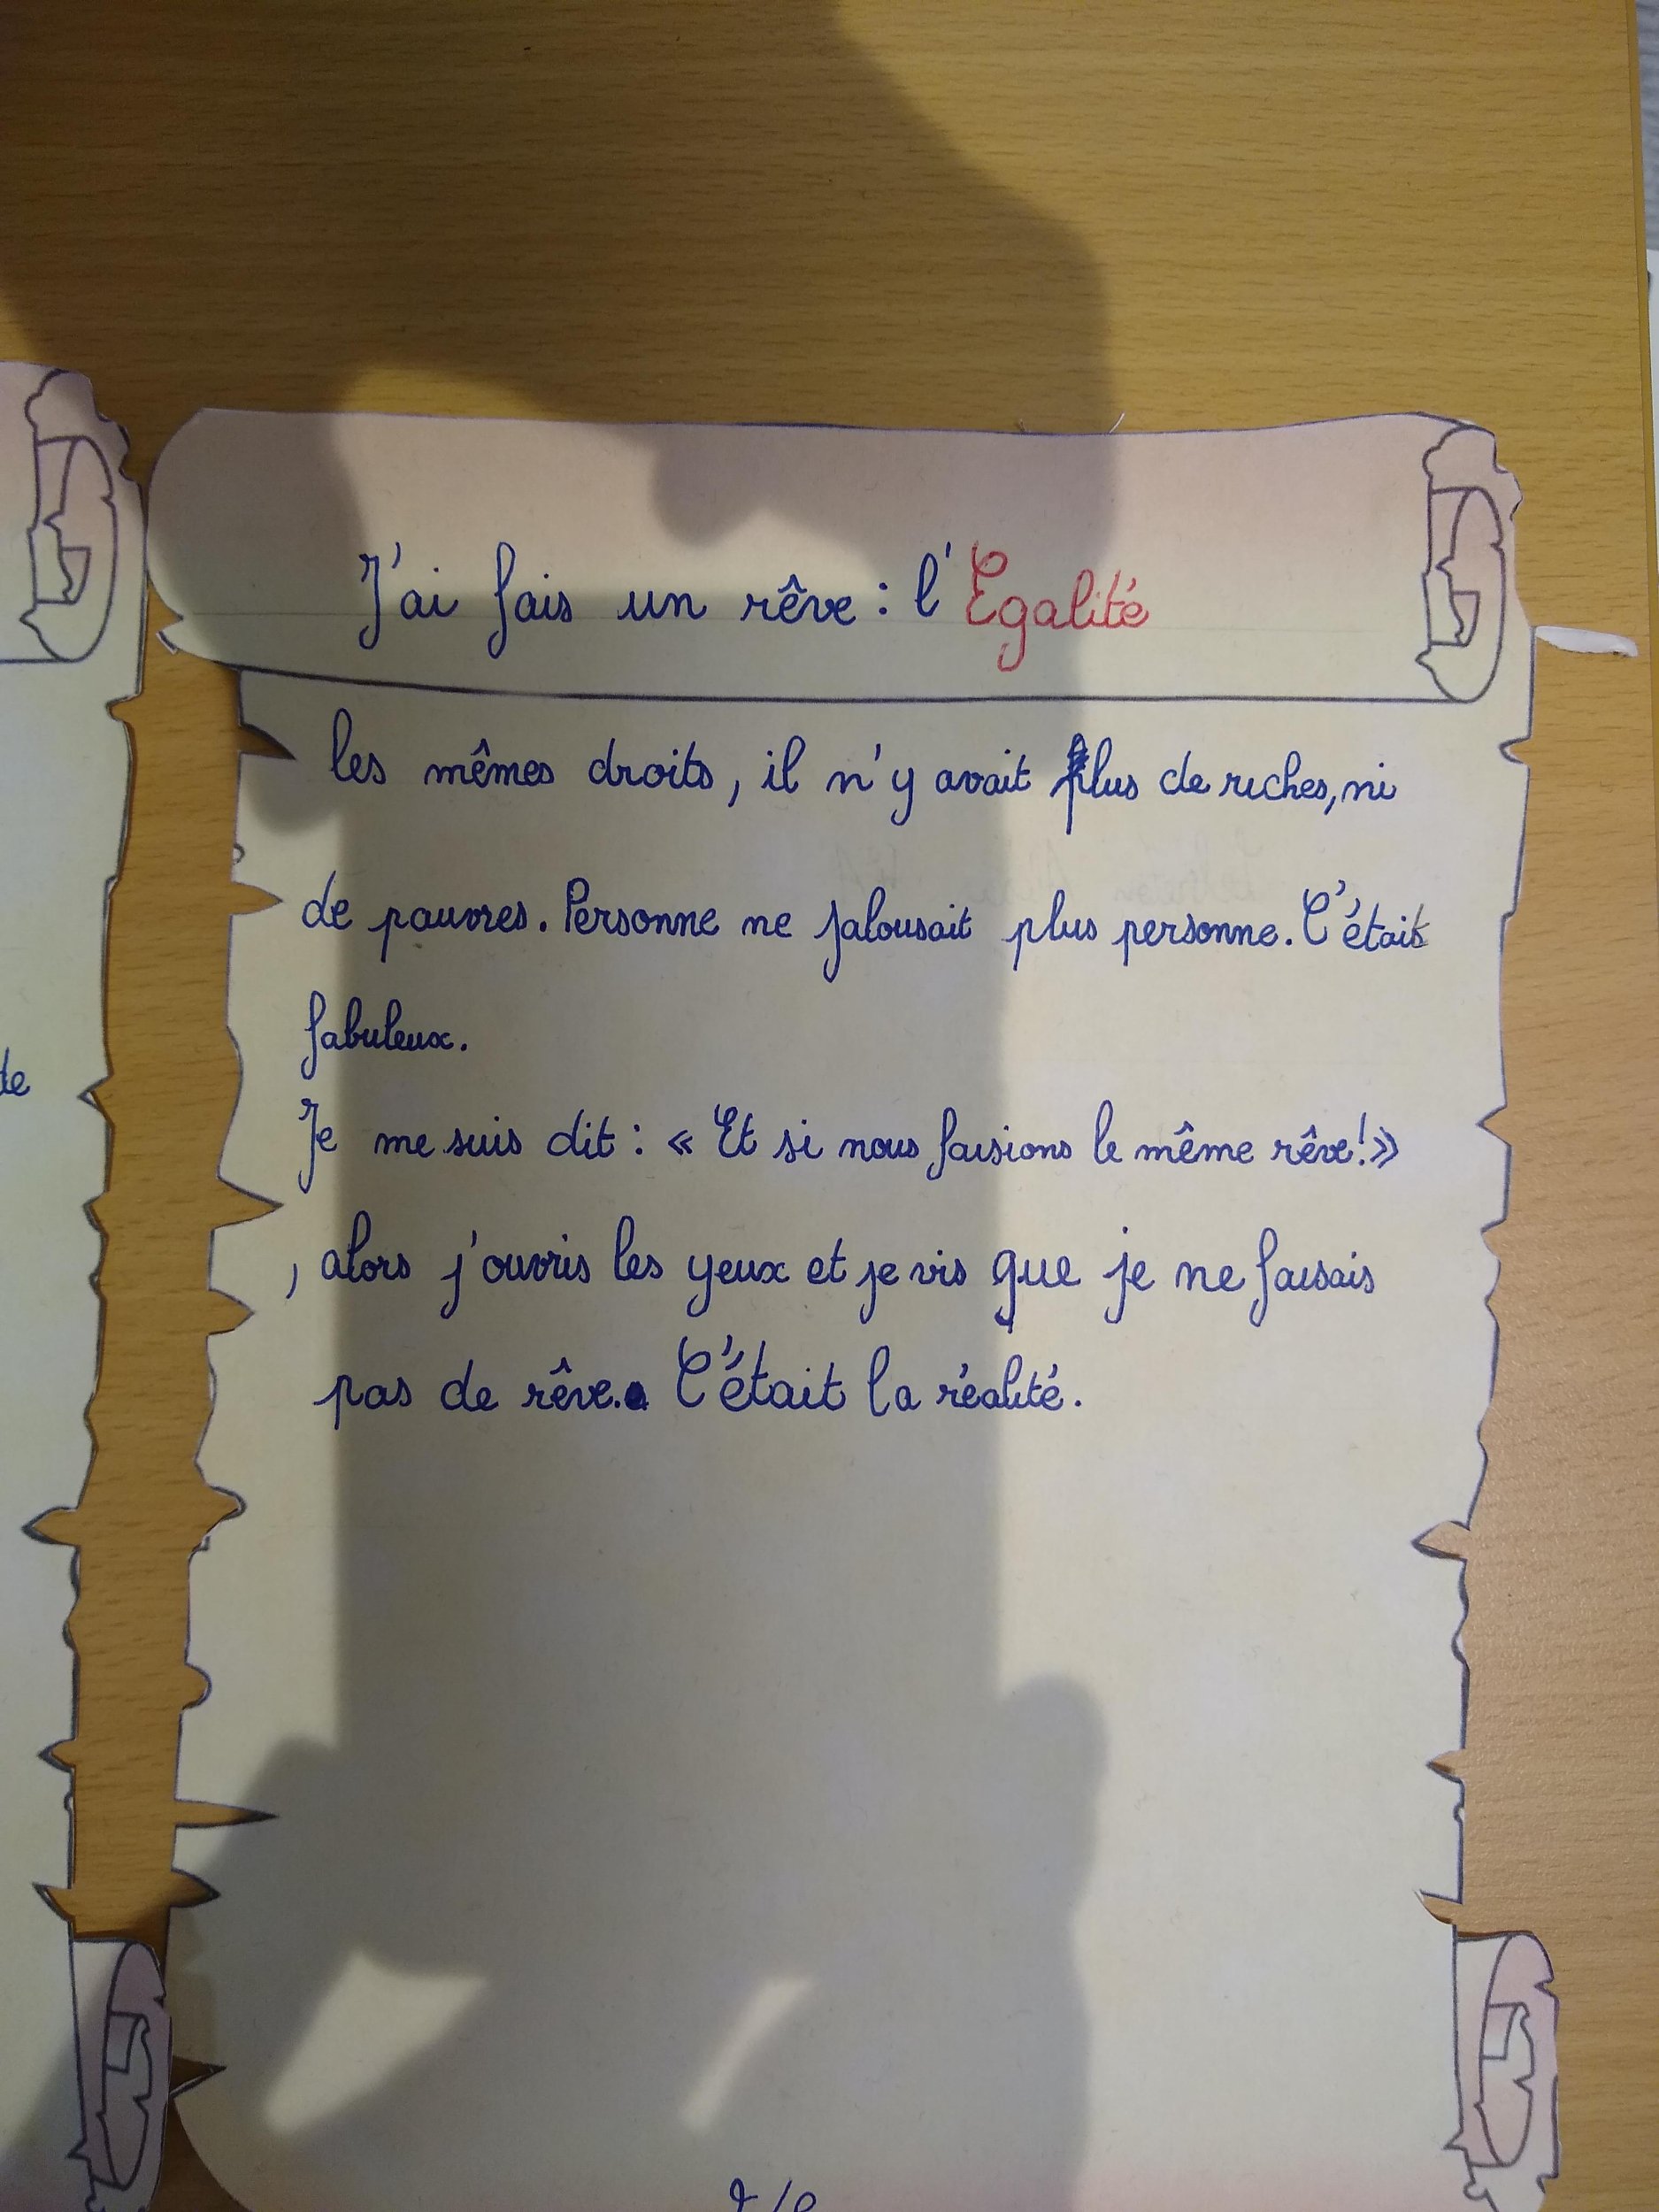 J'ai fais un rêve : l'Egalité
les mêmes droits, il n'y avait plus de riches, ni
de pauvres. Personne ne jalousait plus personne. C'était
fabuleux.
Je me suis dit : « Et si nous faisions le même rêve! »
, alors j'ouvris les yeux et je vis que je ne faisais
pas de rêve. C'était la réalité.
de